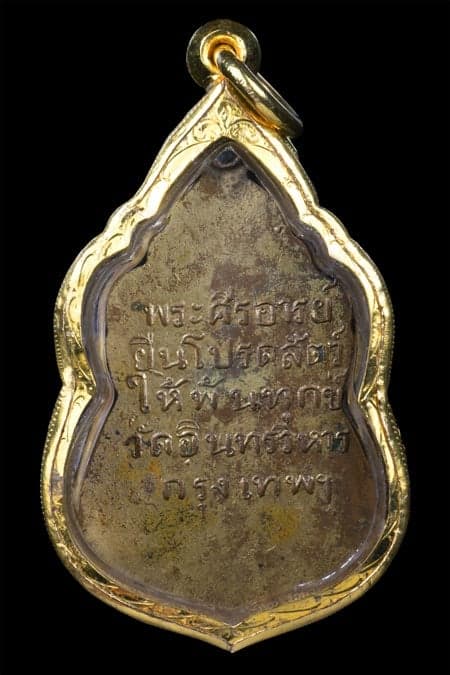 พระศรีอารย์
ยืนโปรดสัตว์
ให้พ้นทุกข์
วัดอินทรวิหาร
กรุงเทพฯ